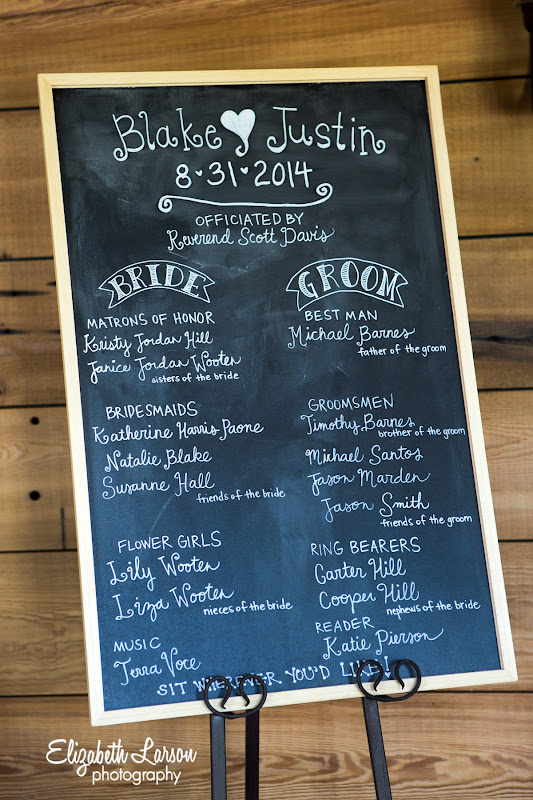 Blake Justin
8·31·2014
OFFICIATED BY
Reverend Scott Davis
BRIDE
MATRONS OF HONOR
Kristy Jordan Hill
Janice Jordan Wooten
sisters of the bride
BRIDESMAIDS
Katherine Harris Paone
Natalie Blake
Susanne Hall
friends of the bride
FLOWER GIRLS
Lily Wooten
Liza Wooten
nieces of the bride
MUSIC
Terra Voce
GROOM
BEST MAN
Michael Barnes
father of the groom
GROOMSMEN
Timothy Barnes
brother of the groom
Michael Santos
Jason Marden
Jason Smith
friends of the groom
RING BEARERS
Carter Hill
Cooper Hill
nephews of the bride
READER
Katie Pierson
SIT WHEREVER YOU'D LIKE!
Elizabeth Larson
photography